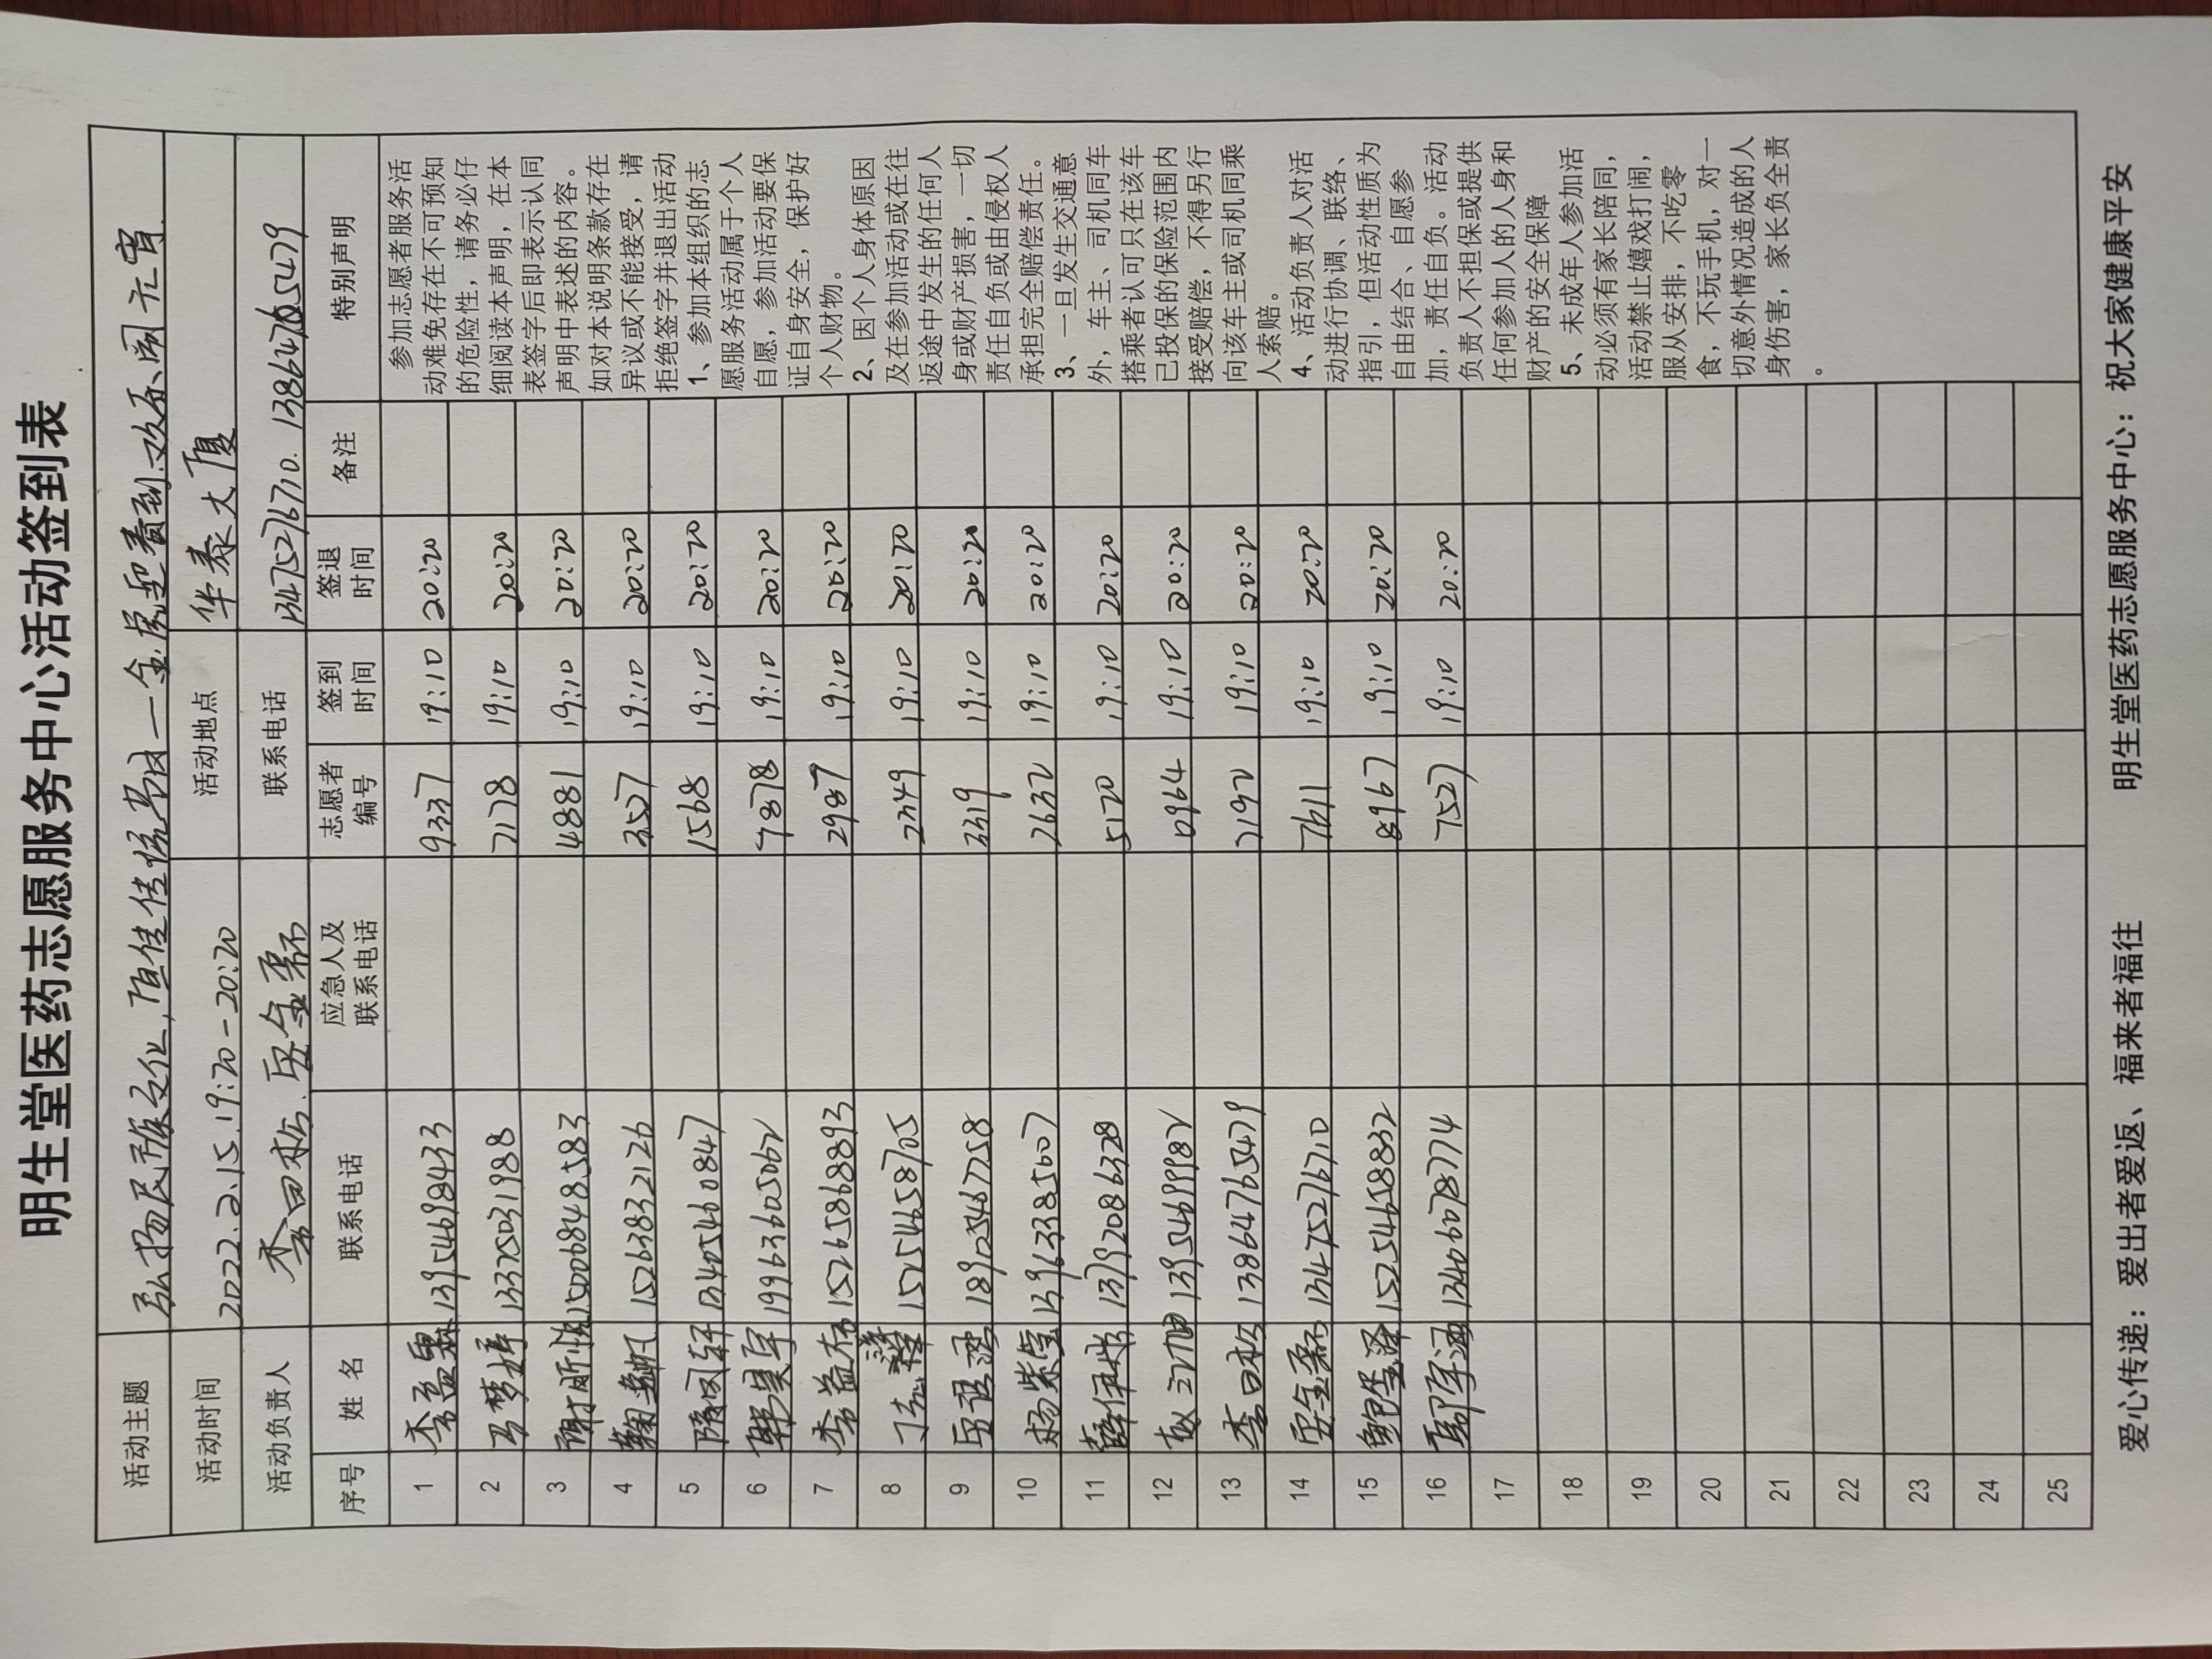 明生堂医药志愿服务中心活动签到表
活动主题 弘扬民族文化,
活动时间 2022.2.15.19:20-20:20 活动地点 华泰大厦
活动负责人 联系电话 13475276710. 13864765479
序号 姓 名 联系电话 应急人及联系电话 志愿者编号 签到时间 签退时间 备注 特别声明
1 李盈 13954698433 9337 19:10 20:20
2 马梦婷 13375031988 7178 19:10 20:20
3 15006848583 4881 19:10 20:20
4 15263832126 3527 19:10 20:20
5 隋凤轩 13405460847 1568 19:10 20:20
6 韩昊宇 19963605062 7878 19:10 20:20
7 李益存 15265868893 2987 19:10 20:20
8 15254658705 2349 19:10 20:20
9 18905467758 3319 19:10 20:20
10 杨紫莹 13963385607 2632 19:10 20:20
11 薛伊彤 13792086328 5170 19:10 20:20
12 13954699982 0964 19:10 20:20
13 13864765479 2192 19:10 20:20
14 13475276710 7611 19:10 20:20
15 15254658832 8967 19:10 20:20
16 13406078774 7527 19:10 20:20
17
18
19
20
21
22
23
24
25
参加志愿者服务活
动难免存在不可预知
的危险性，请务必仔
细阅读本声明，在本
表签字后即表示认同
声明中表述的内容。
如对本说明条款存在
异议或不能接受，请
拒绝签字并退出活动
1、参加本组织的志
愿服务活动属于个人
自愿，参加活动要保
证自身安全，保护好
个人财物。
2、因个人身体原因
及在参加活动或在往
返途中发生的任何人
身或财产损害，一切
责任自负或由侵权人
承担完全赔偿责任。
3、一旦发生交通意
外，车主、司机同车
搭乘者认可只在该车
已投保的保险范围内
接受赔偿，不得另行
向该车主或司机同乘
人索赔。
4、活动负责人对活
动进行协调、联络、
指引，但活动性质为
自由结合、自愿参
加，责任自负。活动
负责人不担保或提供
任何参加人的人身和
财产的安全保障
5、未成年人参加活
动必须有家长陪同，
活动禁止嬉戏打闹，
服从安排，不吃零
食，不玩手机，对一
切意外情况造成的人
身伤害，家长负全责
。
爱心传递：爱出者爱返、福来者福往 明生堂医药志愿服务中心：祝大家健康平安